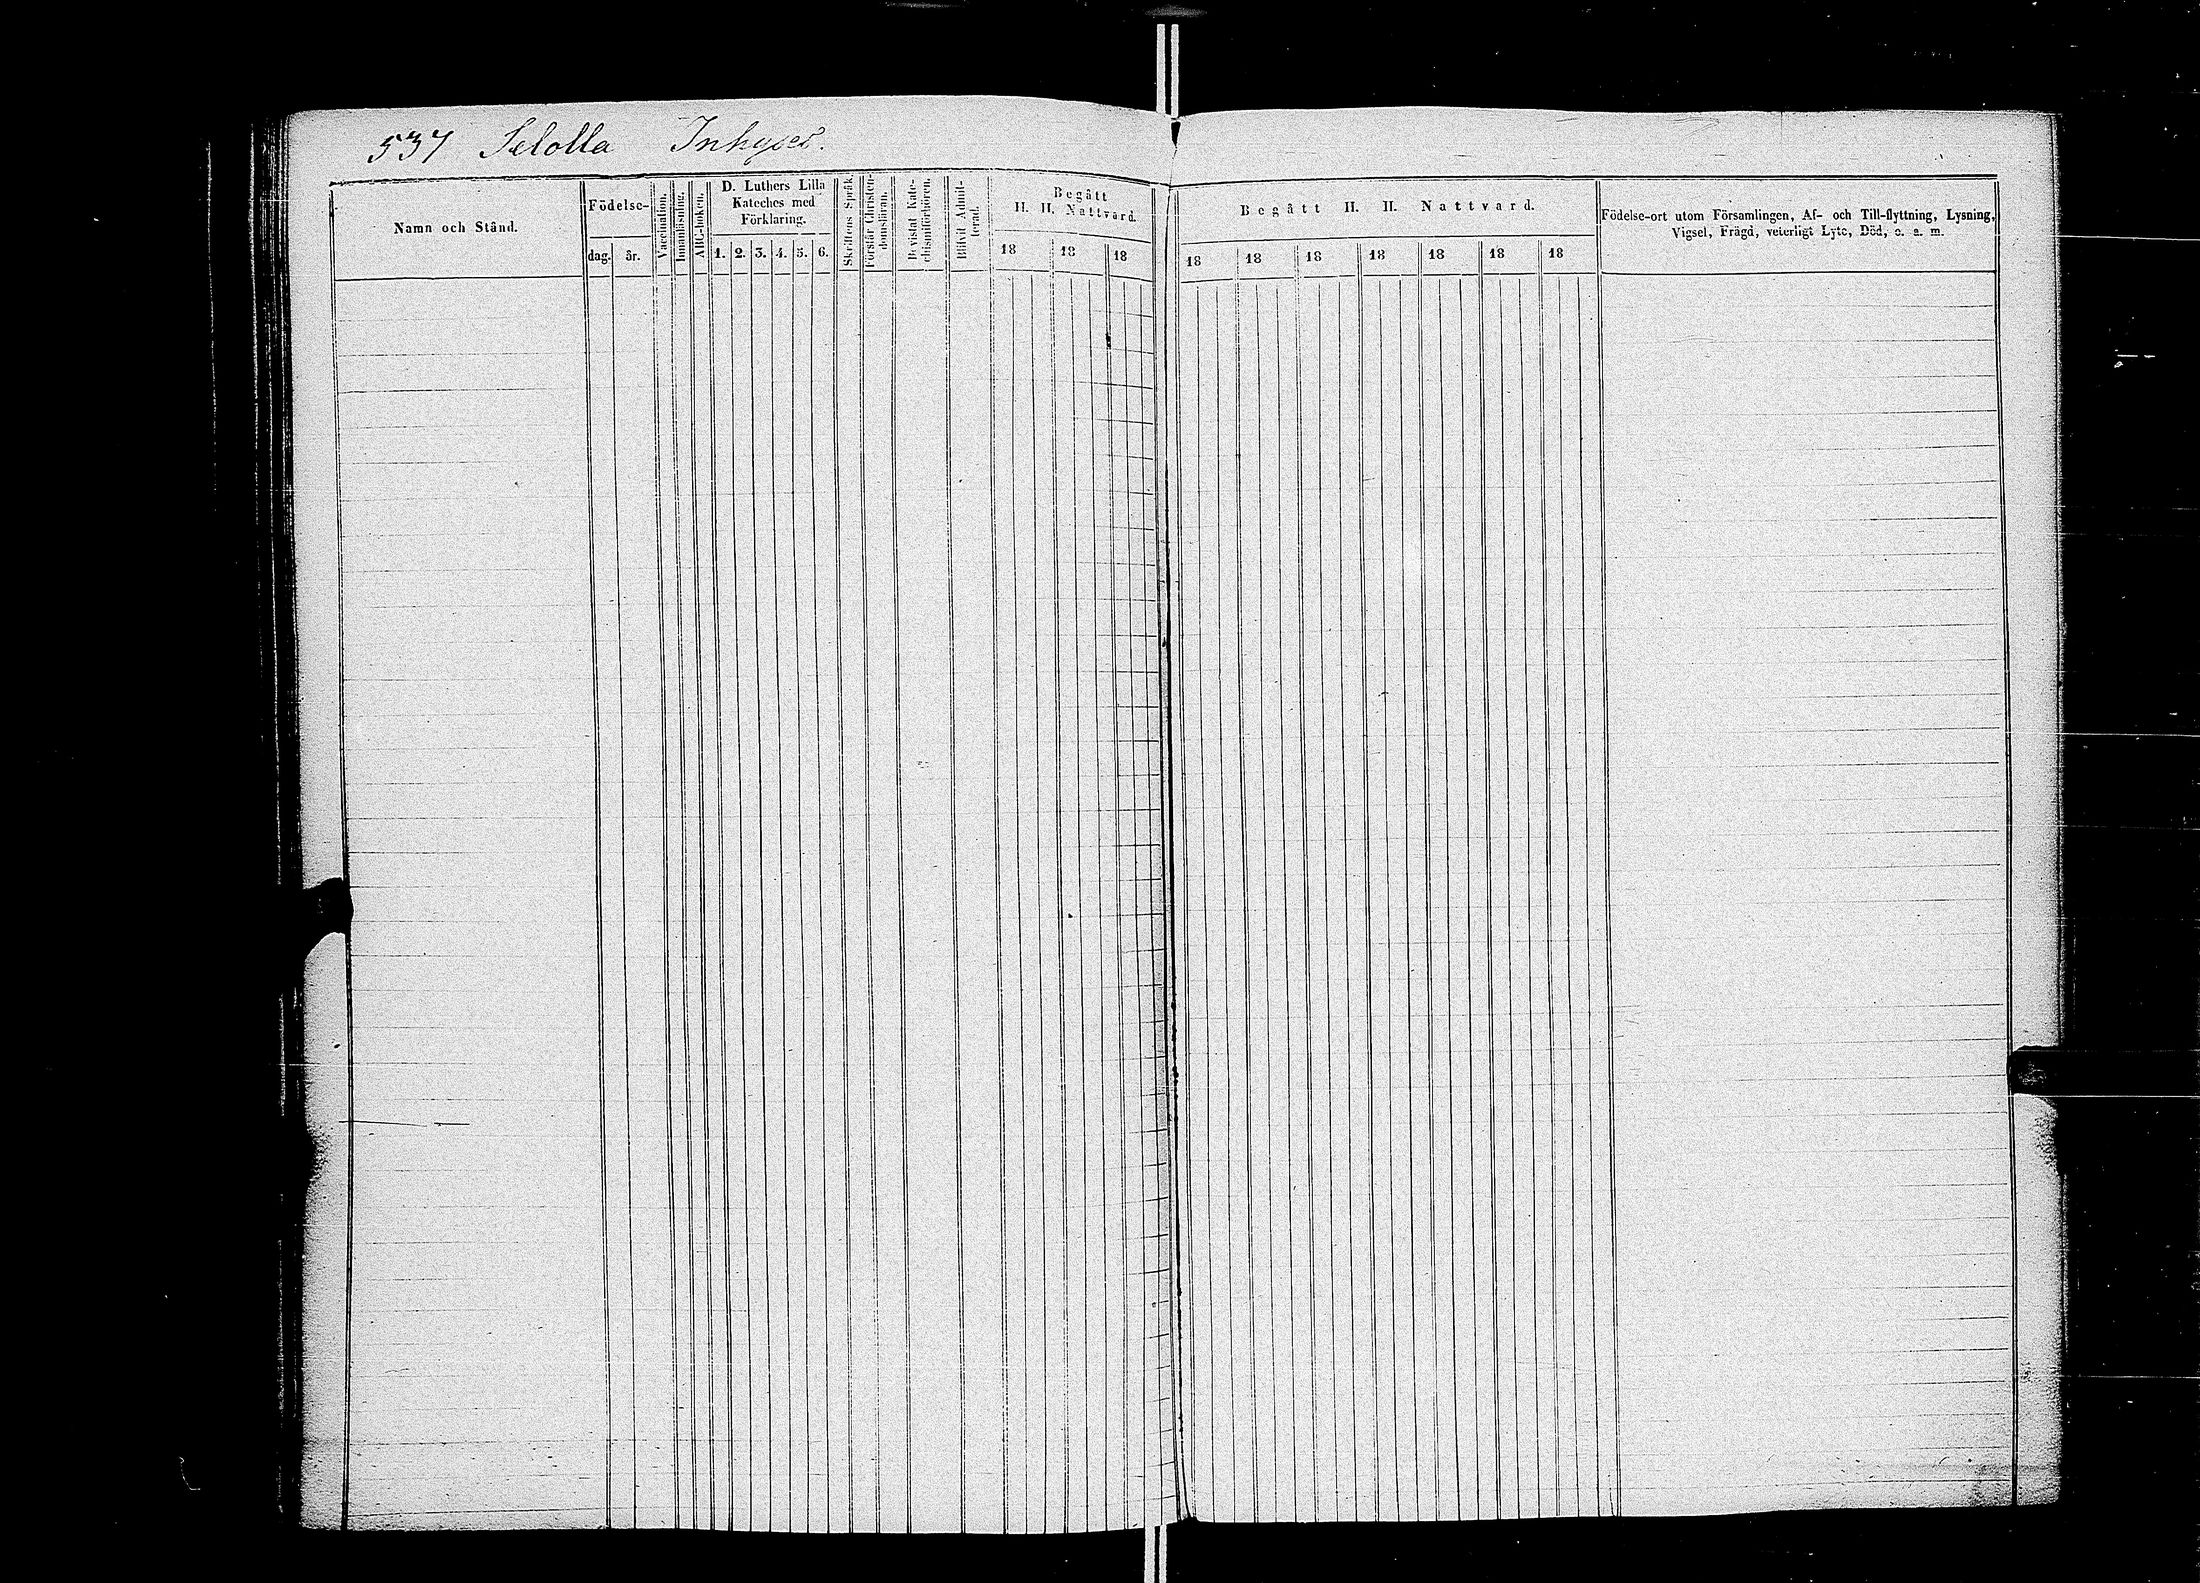 537 Selolla Inhyses.
Namn och Stånd.
Födelse-
dag. år.
Vaccination.
Innanläsning.
ABC-boken.
D. Luthers Lilla
Kateches med
Förklaring.
1. 2. 3. 4. 5. 6.
Skriftens Språk.
Förstår Christen-
domsläran.
Bevistat Kate-
chismiförhören.
Blifvit Admit-
terad.
Begått
H. H. Nattvard.
18 18 18
Begått H. H. Nattvard.
18 18 18 18 18 18 18
Födelse-ort utom Församlingen, Af- och Till-flyttning, Lysning,
Vigsel, Frägd, veterligt Lyte, Död, e. a. m.